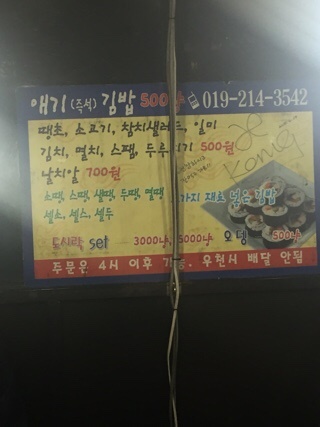 애기 (즉석) 김밥 500냥 019-214-3542
땡초, 소고기, 참치샐러드, 일미
김치, 멸치, 스팸, 두루치기 500원
날치알 700원
소땡, 스땡, 샐땡, 두땡, 멸땡 가지 재료 넣은 김밥
샐소, 샐스, 샐두
도시락 set 3000냥, 5000냥 오뎅 500냥
주문은 4시 이후 가능. 우천시 배달 안됨